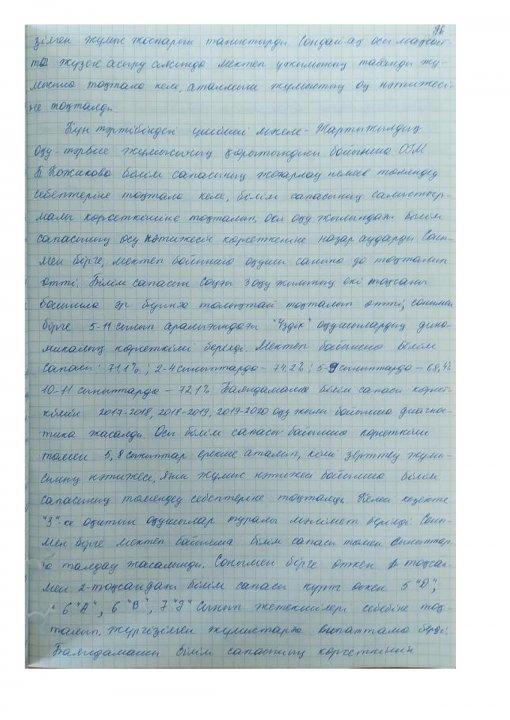 96
зілген жұмыс жоспарын таныстырды. Сондай-ақ осы мақсат-
ты жүзеге асыру мектеп ұжымының
тоқтала келе, аталмыш жұмыстың оң нәтижесі-
не тоқталды.
Күн тәртібіндегі үшінші мәселе - Жартыжылдық
оқу-тәрбие жұмысының қорытындысы бойынша ОІМ
Б Кожикова білім сапасының жоғарлау немесе төмендеу
себептеріне тоқтала келе, білім сапасының салыстыр-
малы көрсеткішіне тоқталып, осы оқу жылындағы білім
сапасының өсу нәтижесін көрсеткішіне назар аударды. Соны-
мен бірге, мектеп бойынша оқушы санына да тоқталып
өтті. Білім сапасын соңғы 3 оқу жылының екі тоқсаны
бойынша әр буынға толықтай тоқталып өтті; сонымен
бірге 5-11 сынып аралығындағы "Үздік" оқушылардың дина-
микалық көрсеткіші берілді. Мектеп бойынша білім
сапасы: 71.1%; 2-4 сыныптарда - 74,2%; 5-9 сыныптарда - 68,4%
10-11 сыныптарда - 72,1% Баяндамашы білім сапасы көрсет-
кішін 2017-2018, 2018-2019, 2019-2020 оқу жылы бойынша диагнос-
тика жасалды. Осы білім сапасы бойынша көрсеткіші
төмен 5, 8 сыныптар ерекше аталып, кәсіби зерттеу жұмы-
сының нәтижесі, яғни жұмыс нәтижесі бойынша білім
сапасының төмендеу себептеріне тоқталды. Келесі кезекте
"3"-ке оқитын оқушылар туралы мәлімет берілді. Соны-
мен бірге мектеп бойынша білім сапасы төмен сыныптар-
ға талдау жасалынды. Сонымен бірге өткен тоқсан-
мен 2-тоқсандағы білім сапасы күрт өскен 5 "Ә",
6 "А", 6 "В", 7 "Ә" сынып жетекшілері себебіне тоқ-
талып, жүргізілген жұмыстарға сипаттама берді.
Баяндамашы білім сапасының көрсеткішін